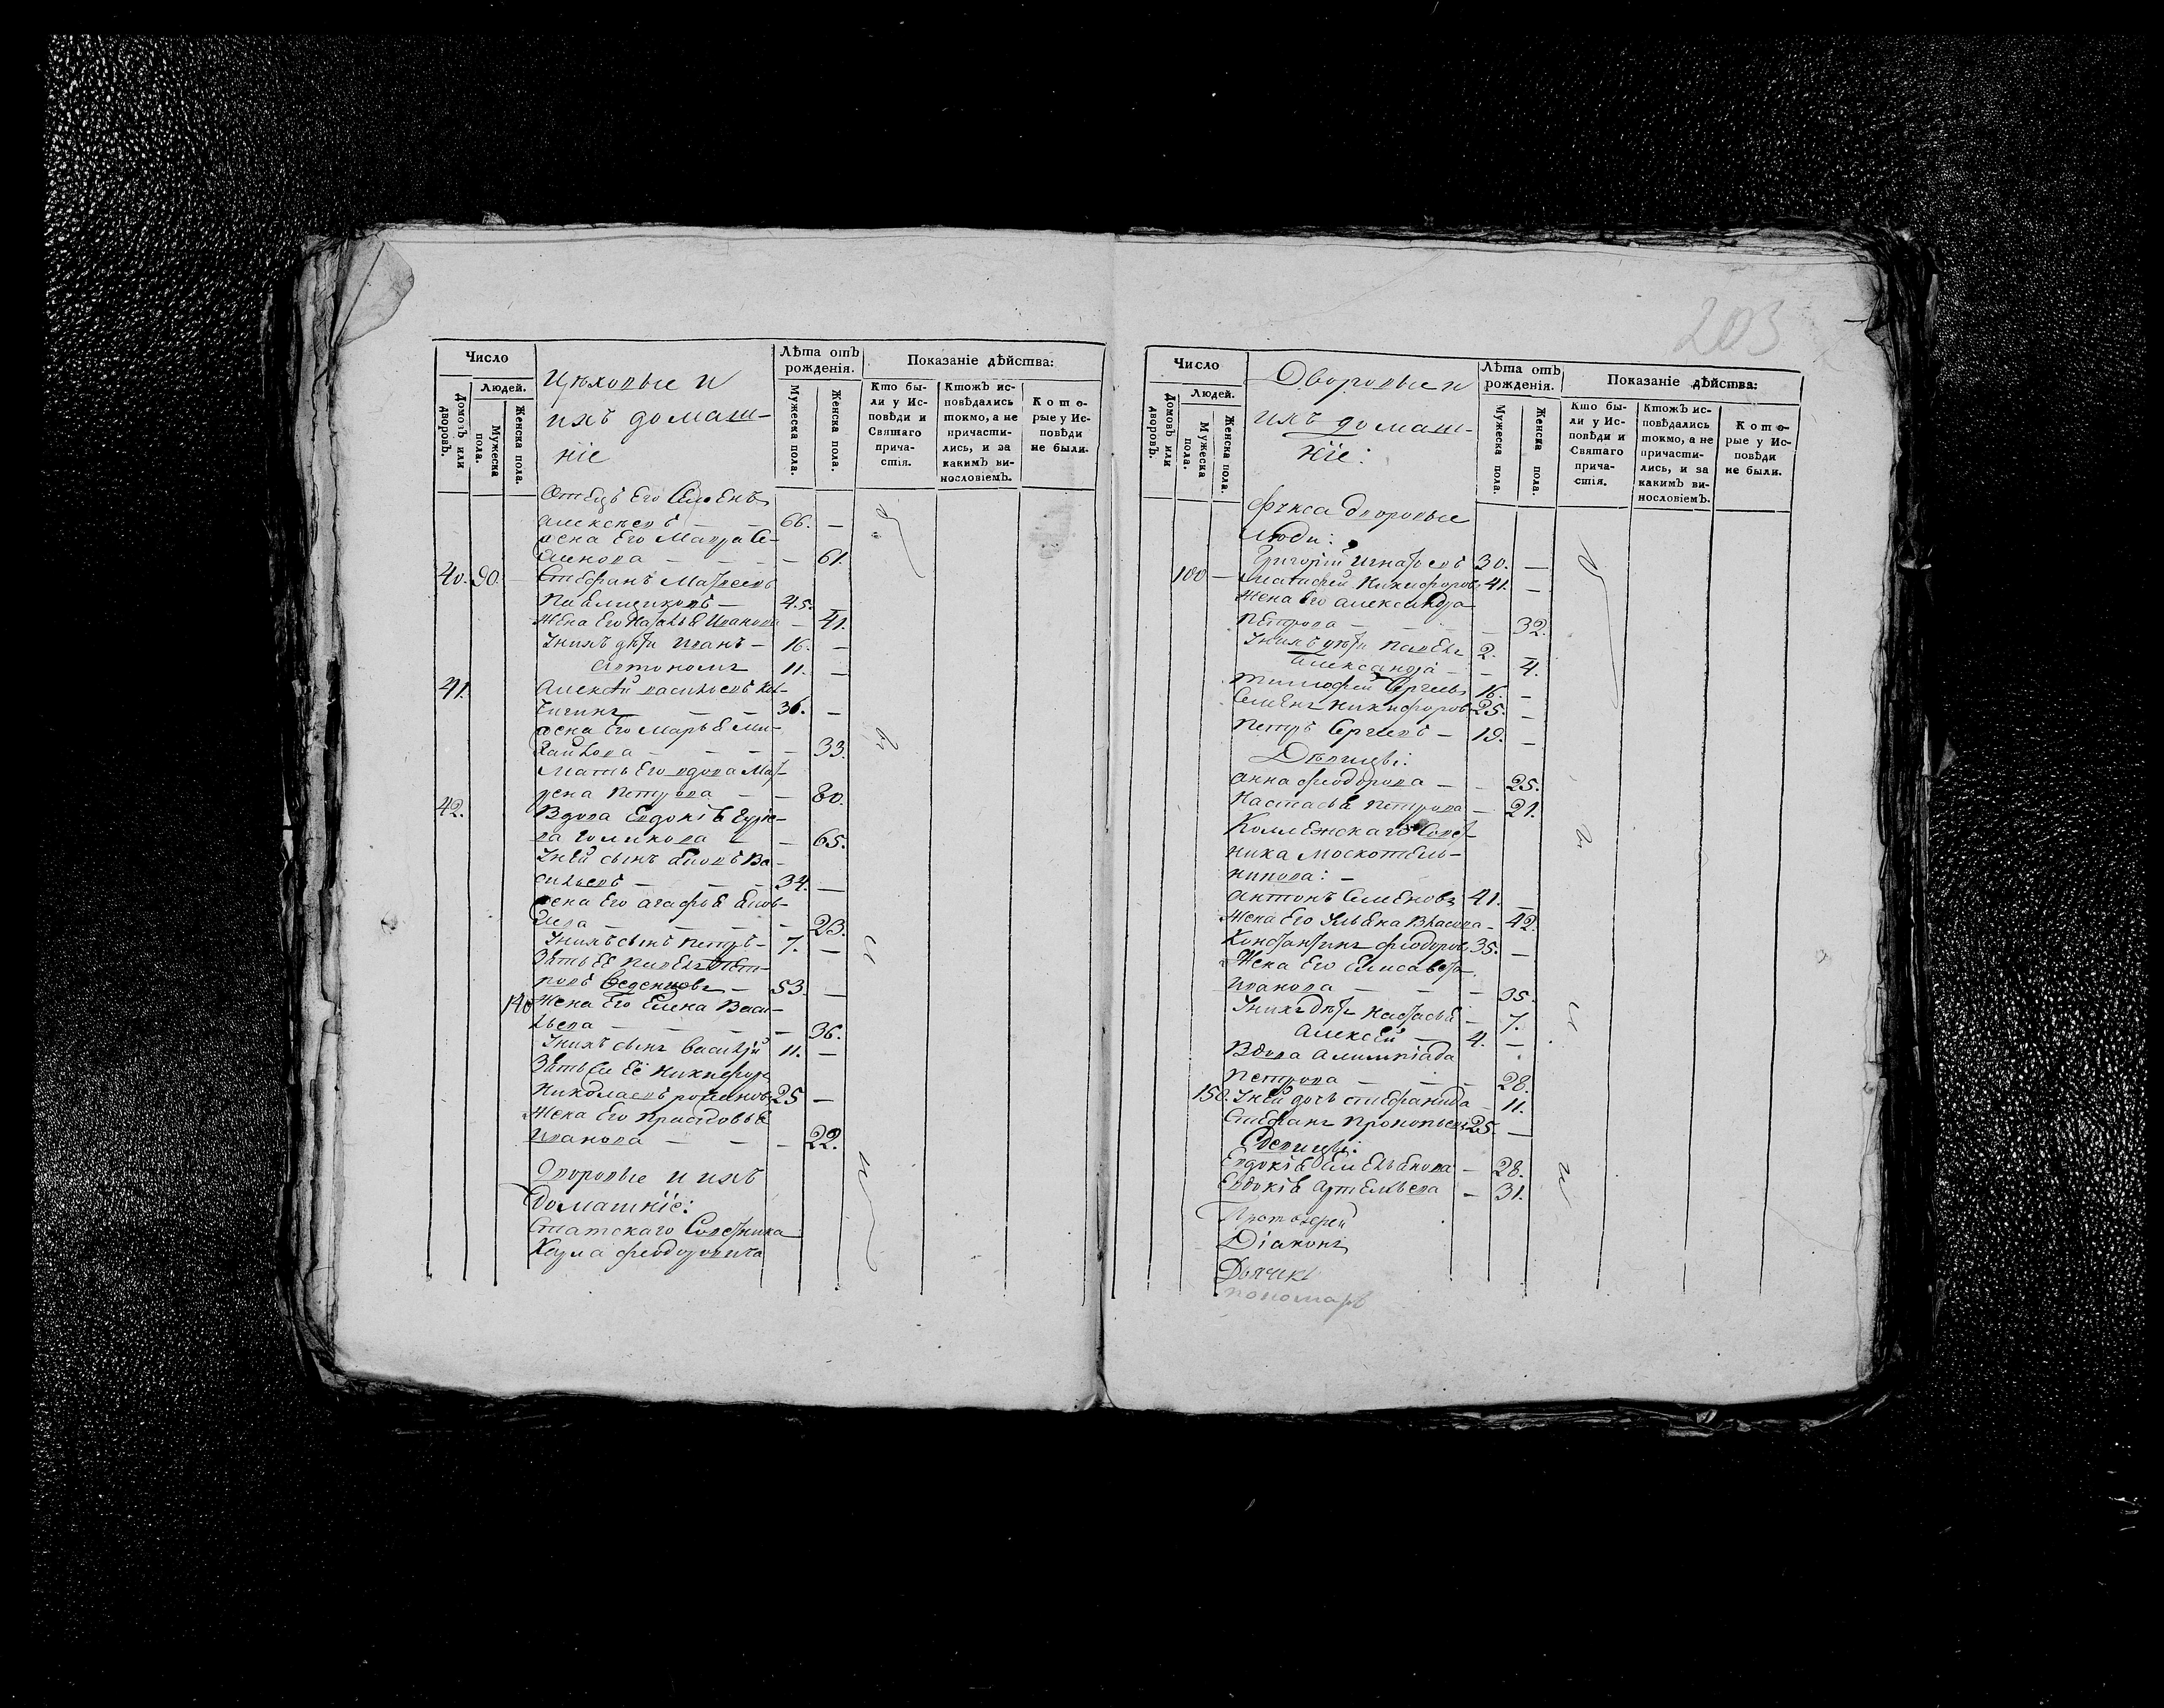 Число
Людей.
Домовъ или дворовъ.
Мужеска пола.
Женска пола.
Цѣховые и
ихъ домаш-
ніе
Лѣта отъ рожденія.
Мужеска пола.
Женска пола.
Показаніе дѣйства:
Кто бы-
ли у Ис-
повѣди и
Святаго
прича-
стія.
Ктожъ ис-
повѣдались
токмо, а не
причасти-
лись, и за
какимъ ви-
нословіемъ.
Кото-
рые у Ис-
повѣди
не были.
Отецъ Его Семенъ
Алексѣевъ — — 66. —
жена Его Мавра Се-
менова — — — 61.
40. 90. Стефанъ Матвеевъ
45. —
Жена Его Наталья Иванова — 41.
Уних дѣти Иванъ — 16. —
Автономъ 11. —
41. Алексѣй Васильевъ
36. —
жена Его Марья Ми-
хайлова — — — 33.
Мать Его вдова Мат-
рена Петрова — — 80.
42. Вдова Евдокія
Голикова — — 65.
Уней сынъ Ва-
сильевъ — — 34. —
жена Его Агафья
— — — 23.
Унихъ сынъ Петръ — 7. —
Зять Её Павелъ Пет-
ровъ — 53. —
140 Жена Его Елена Васи-
льева — — — 36.
Унихъ сынъ Василій 11. —
Зять Ея Её Никифоръ
Николаевъ 25 —
Жена Его Прасковья
Иванова — — — 22.
Дворовые и ихъ
Домашніе:
Статскаго Советника
Феодоровича
203
Число
Людей.
Домовъ или дворовъ.
Мужеска пола.
Женска пола.
Дворовые и
ихъ домаш-
ніе:
Лѣта отъ рожденія.
Мужеска пола.
Женска пола.
Показаніе дѣйства:
Кто бы-
ли у Ис-
повѣди и
Святаго
прича-
стія.
Ктожъ ис-
повѣдались
токмо, а не
причасти-
лись, и за
какимъ ви-
нословіемъ.
Кото-
рые у Ис-
повѣди
не были.
Фукса дворовые
люди:
Григорій Игнатьевъ 30. —
100 — Никифоровъ 41. —
Жена Его Александра
Петрова — — — 32.
Унихъ дѣти Павелъ 2. —
Александра — — 4.
Тимофей Сергеевъ 16. —
Семенъ Никифоровъ 25. —
Петръ Сергеевъ — 19. —
Дѣвицы:
Анна Феодорова — — 25.
Настасья Петрова — 21.
Коллежскаго Совет-
ника Москотель-
никова: —
Антонъ Семеновъ 41. —
Жена Его Ульяна Власова — 42.
Константинъ Феодоровъ 35. —
Жена Его Елисавета
Иванова — — — 35.
Унихъ дѣти Настасья — 7.
Алексей — 4. —
Вдова Алимпіада
Петрова — — — 28.
150. Уней дочь Стефанида — 11.
Стефанъ Прокопьевъ 25. —
Девицы:
Евдокія Емельянова — 28.
Евдокія Артемьева — 31.
Протоіерей
Діаконъ
Дьячекъ
пономарь